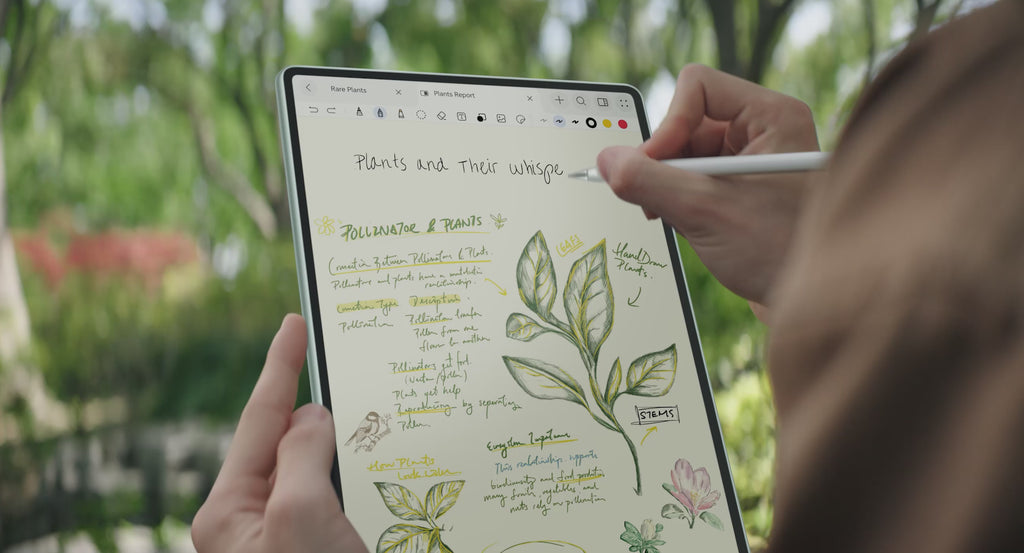 Rare Plants
Plants Report
Plants and Their whispe
POLLINATOR & PLANTS
LEAFS
Hand Drawn
Plants.
Connection Between Pollinator & Plants.
Pollinators and plants have a
relationship.
Connection Type Description
Pollination Pollinator transfer
Pollen from one
flower to another
Pollinators get food.
(Nectar/pollen)
Plants get help
by
Pollen.
STEMS
How Plants
Ecosystem Importance
This relationship supports
biodiversity and food production
many fruits, vegetables and
nuts rely on pollination